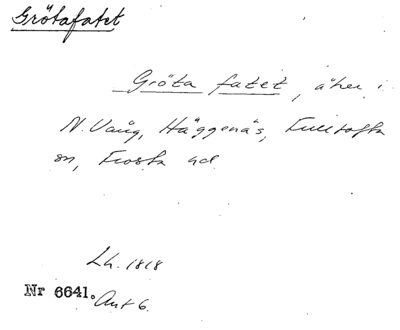 Grötafatet
Gröta fatet, åker i
N. Vång, Häggenäs, Fulltofta
sn, Frosta hd.
Lh. 1818
Nr 6641. Akt 6.